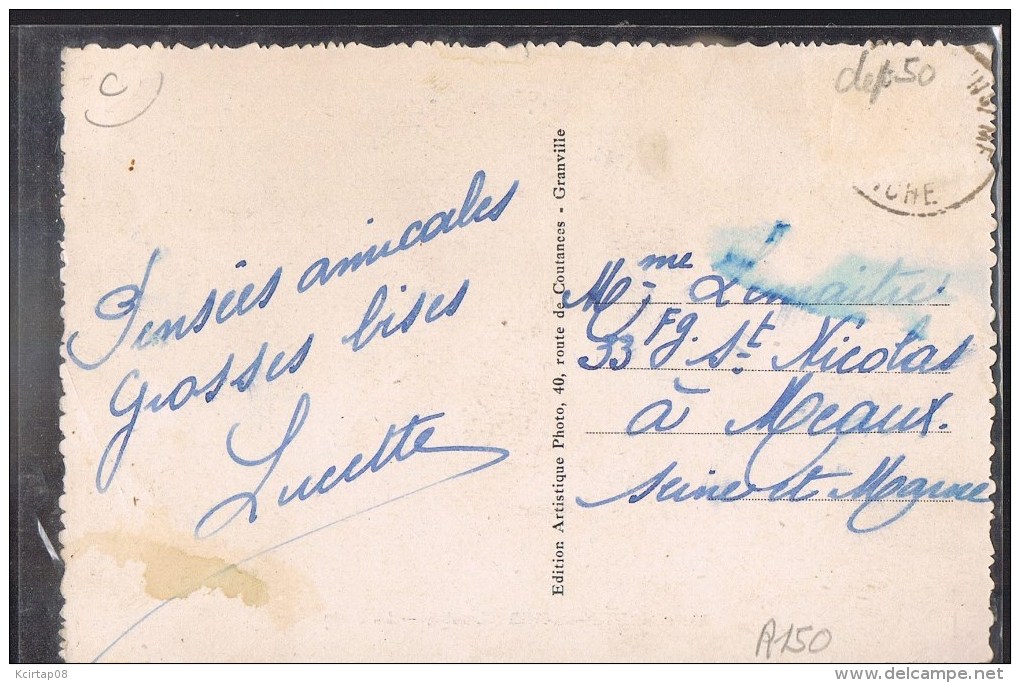 C
dept 50
NCHE
Pensées amicales
Grosses bises
Lucette
Edition Artistique Photo, 40, route de Coutances - Granville
Mme Lemaitre
33 Fg. St Nicolas
à Meaux.
Seine et Marne
A150
Kcirtap08
delcampe.net